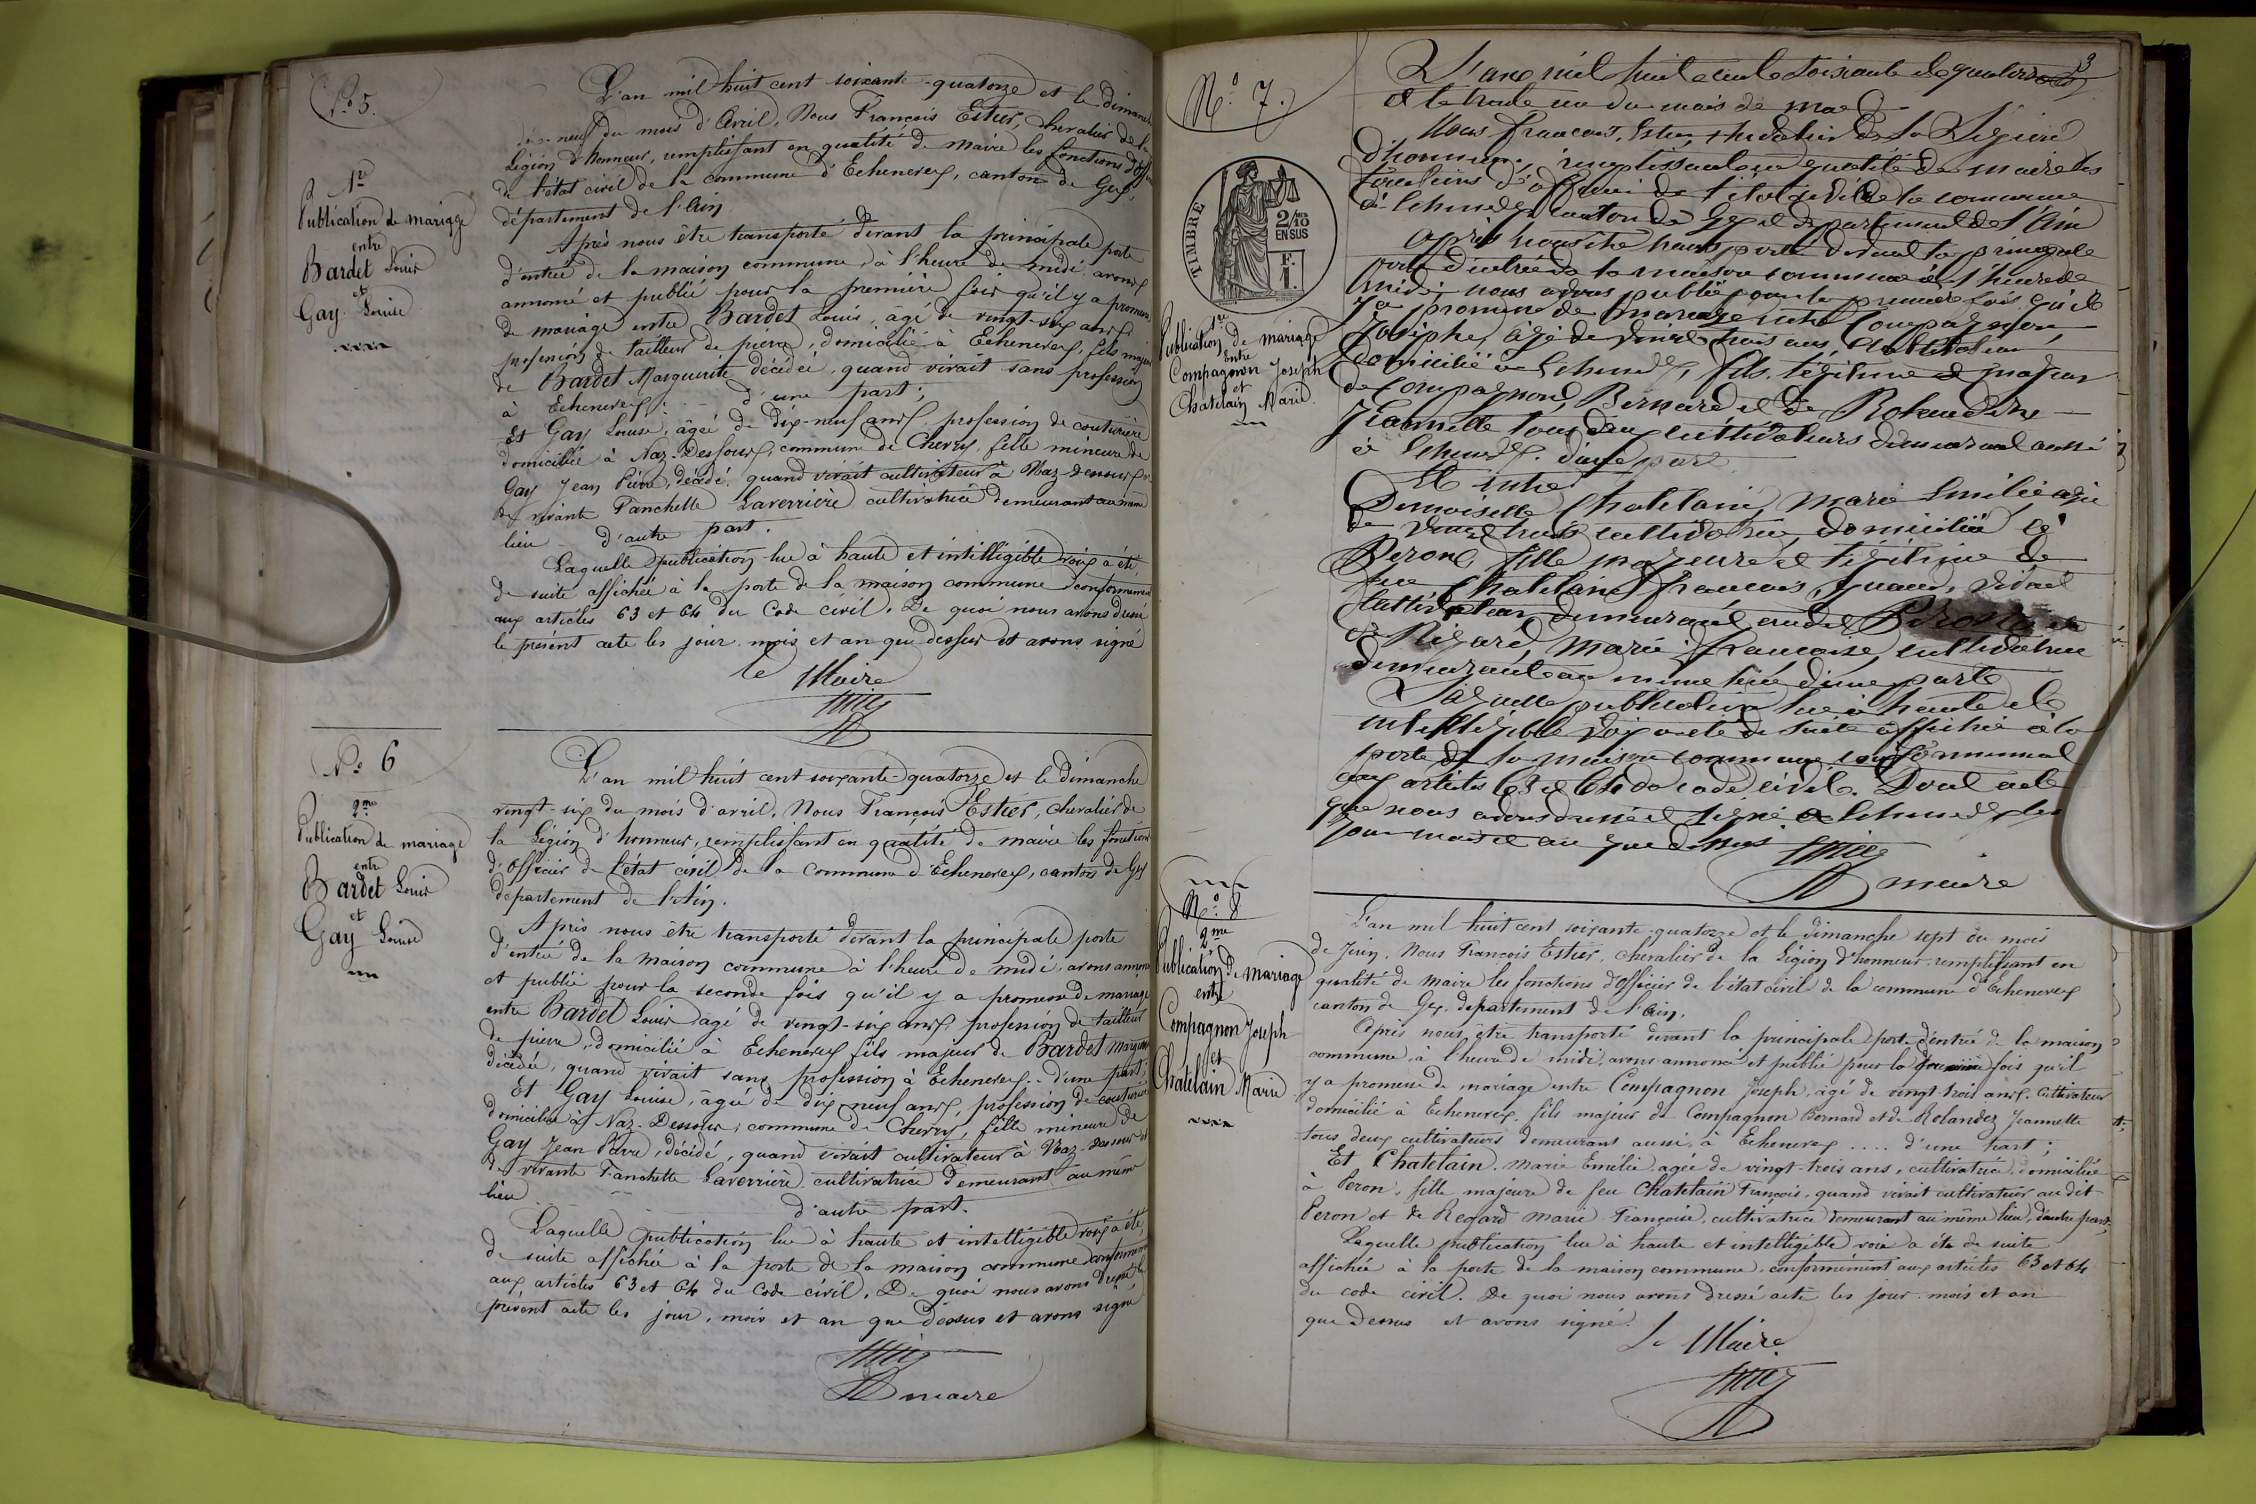 N° 5.
1re
Publication de mariage
entre
Bardet Louis
et
Gay Louise
L'an mil huit cent soixante-quatorze et le dimanche
dix neuf du mois d'Avril, Nous François Estier, chevalier de la
Légion d'honneur, remplissant en qualité de maire les fonctions d'officier
de l'état civil de la commune d'Echenevex, canton de Gex,
département de l'Ain
Après nous être transporté devant la principale porte
d'entrée de la maison commune, à l'heure de midi avons
annoncé et publié pour la première fois qu'il y a promesse
de mariage entre Bardet Louis, âgé de vingt-six ans,
profession de tailleur de pierre, domicilié à Echenevex, fils majeur
de Bardet Marguerite décédée, quand vivait sans profession
à Echenevex. d'une part;
Et Gay Louise, âgée de dix-neuf ans, profession de couturière
domiciliée à Naz-Dessous, commune de Chevry, fille mineure de
Gay Jean Pierre, décédé, quand vivait cultivateur à Naz-dessous et
de vivante Fanchette Laverrière cultivatrice demeurant au même
lieu d'autre part.
Laquelle publication lue à haute et intelligible voix a été
de suite affichée à la porte de la maison commune conformément
aux articles 63 et 64 du Code civil. De quoi nous avons dressé
le présent acte les jour, mois et an que dessus et avons signé
le Maire
N° 6
2me
Publication de mariage
entre
Bardet Louis
et
Gay Louise
L'an mil huit cent soixante-quatorze et le dimanche
vingt-six du mois d'avril, Nous François Estier, chevalier de
la Légion d'honneur, remplissant en qualité de maire les fonctions
d'officier de l'état civil de la commune d'Echenevex, canton de Gex
département de l'Ain.
Après nous être transporté devant la principale porte
d'entrée de la maison commune à l'heure de midi, avons annoncé
et publié pour la seconde fois qu'il y a promesse de mariage
entre Bardet Louis âgé de vingt-six ans, profession de tailleur
de pierre, domicilié à Echenevex fils majeur de Bardet Marguerite
décédée, quand vivait sans profession à Echenevex.. d'une part;
Et Gay Louise, âgée de dix neuf ans, profession de couturière
domiciliée à Naz-Dessous, commune de Chevry, fille mineure de
Gay Jean Pierre, décédé, quand vivait cultivateur à Naz-dessous et
de vivante Fanchette Laverrière cultivatrice demeurant au même
lieu d'autre part.
Laquelle publication lue à haute et intelligible voix a été
de suite affichée à la porte de la maison commune conformément
aux articles 63 et 64 du Code civil. De quoi nous avons dressé le
présent acte les jour, mois et an que dessus et avons signé
maire
3
N° 7.
TIMBRE
2/10
EN SUS
F.
1.
1re
Publication de mariage
Entre
Compagnon Joseph
et
Chatelain Marie
L'an mil huit cent soixante et quatorze
et le trente un du mois de mai
Nous francois, Estier, chevalier de la Légion
d'honneur, remplissant en qualité de maire les
fonctions d'officier de l'état civil de la commune
d'Echenevex canton de Gex et département de l'Ain
Après nous être transporté devant la principale
porte d'entrée de la maison commune à l'heure de
midi, nous avons publié pour la première fois qu'il
y a promesse de mariage entre Compagnon,
Josephe, agé de vingt trois ans, Cultivateur
domicilié à Echenevex, fils légitime et majeur
de Compagnond, Bernard et de Rolendere
Jeannette tous deux cultivateurs demeurant aussi
à Echenevex. d'une part
Et entre
Demoiselle Chatelain, Marie Emilie, agée
de vingt trois cultivatrice, domiciliée à
Peron, fille majeure et légitime de
feu Chatelain francois, quand, vivait
Cultivateur, demeurant audit Peron et
de Régard, Marie francoise, cultivatrice
demeurante au même lieu d'une parte
Laquelle publication lue à haute et
intelligible voix a été de suite affichée à la
porte de la maison commune conformément
aux articles 63 et 64 du code civil. Dont acte
que nous avons dressé et signé à Echenevex les
jour mois et an que dessus
maire
N° 8
2me
Publication de mariage
entre
Compagnon Joseph
et
Chatelain Marie
L'an mil huit cent soixante-quatorze et le dimanche sept du mois
de Juin, Nous François Estier, chevalier de la Légion d'honneur remplissant en
qualité de Maire les fonctions d'officier de l'état civil de la commune d'Echenevex
canton de Gex, département de l'Ain.
Après nous être transporté devant la principale porte d'entrée de la maison
commune à l'heure de midi, avons annoncé et publié pour la fois qu'il
y a promesse de mariage entre Compagnon Joseph, âgé de vingt-trois ans, Cultivateur
domicilié à Echenevex, fils majeur de Compagnon Bernard et de Rolandez Jeannette
tous deux cultivateurs demeurant aussi à Echenevex .... d'une part;
Et Chatelain Marie Emélie, agée de vingt-trois ans, cultivatrice, domiciliée
à Peron, fille majeure de feu Chatelain François, quand vivait cultivateur au dit
Peron et de Regard Marie Françoise, cultivatrice demeurant au même lieu, d'autre part;
Laquelle publication lue à haute et intelligible voix a été de suite
affichée à la porte de la maison commune, conformément aux articles 63 et 64
du code civil. De quoi nous avons dressé acte les jour, mois et an
que dessus et avons signé.
Le Maire